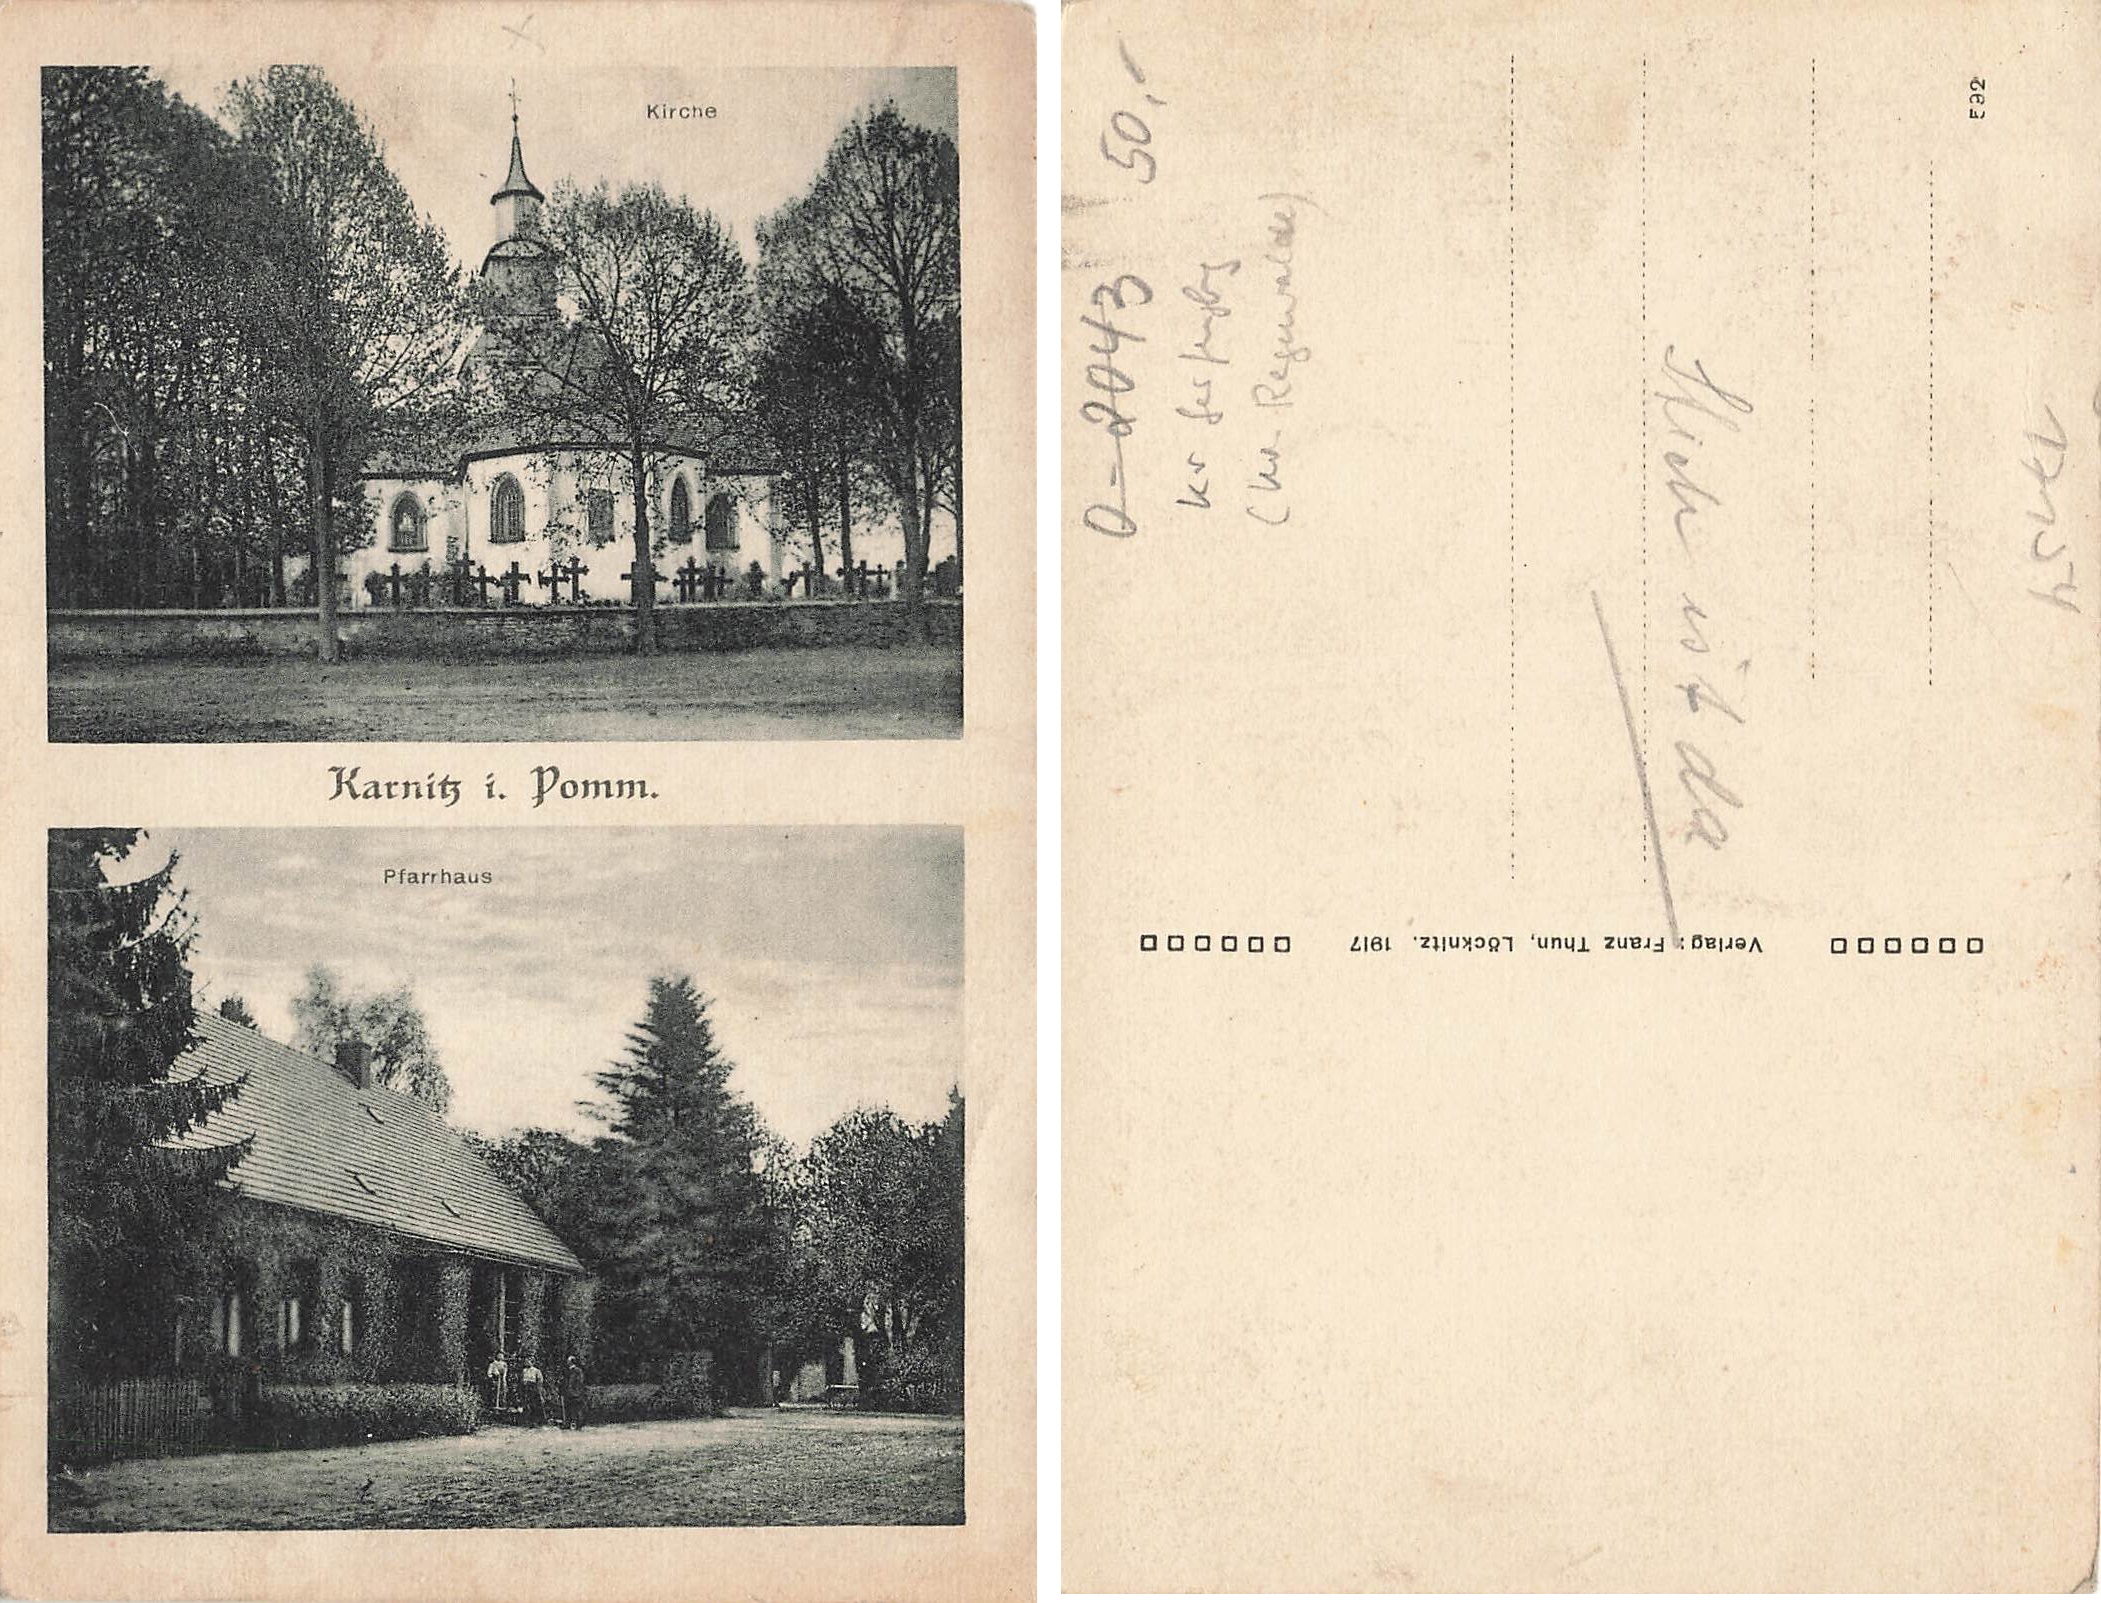 Kirche
Karnitz i. Pomm.
Pfarrhaus
50,-
0-2043
Kr
(Kr. Regenwalde)
ist da
E92
Verlag: Franz Thun, Löcknitz. 1917